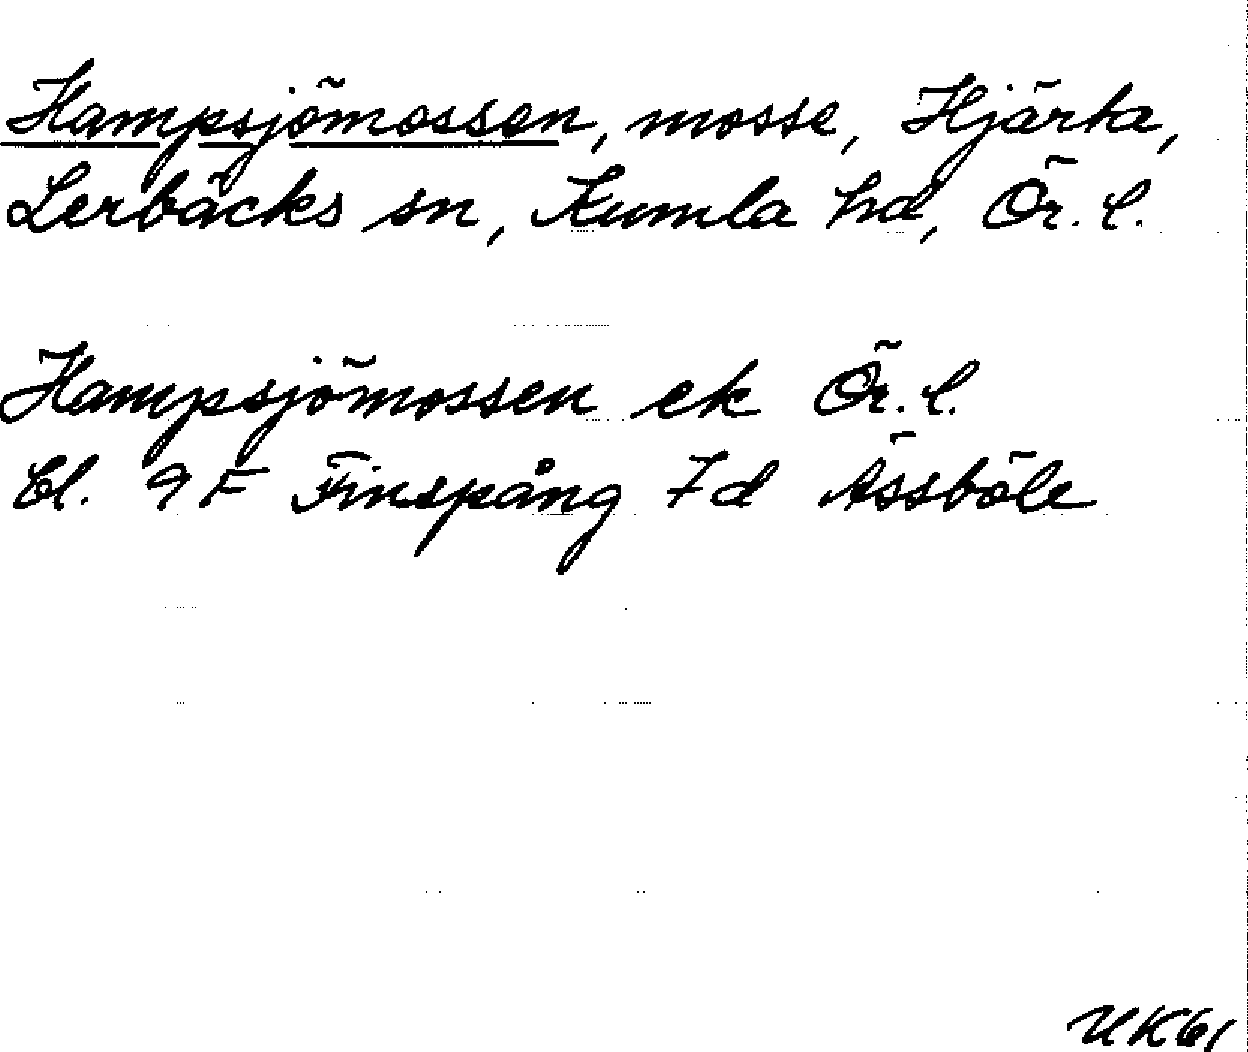 Hampsjömossen, mosse, Hjärta,
Lerbäcks sn, Kumla hd, Ör. l.
Hampsjömossen ek Ör. l.
bl. 9 F Finspång 7d Ässböle
UK61